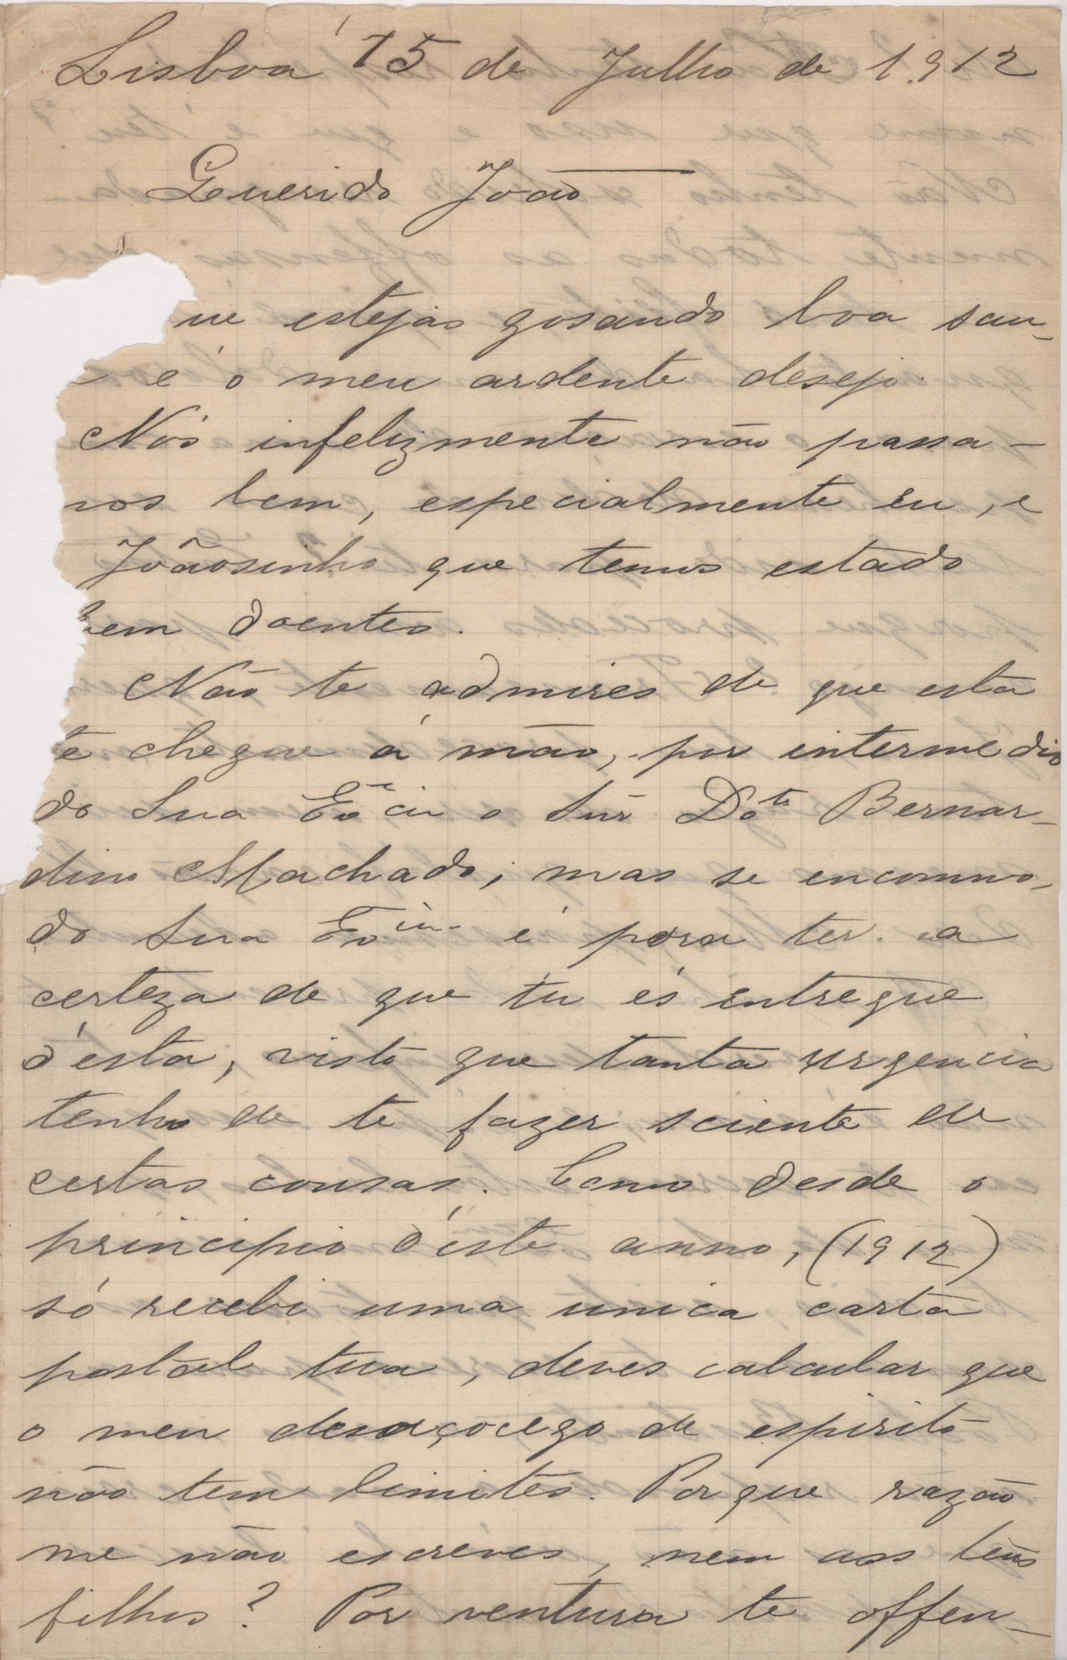 Lisboa 15 de Julho de 1912
Querido João
ue estejas gosando boa sau-
e é o meu ardente desejo.
Nós infelizmente não passa-
mos bem, especialmente eu, e
Joãosinho que temos estado
bem doentes.
Não te admires de que esta
te chegue á mão, por intermedio
do Sua Exª cia o Snr Dotr Bernar-
dino Machado, mas se encommo-
do Sua Exª cia é para ter a
certeza de que tu és entregue
d'esta, visto que tanta urgencia
tenho de te fazer sciente de
certas cousas. Como desde o
principio d'este anno, (1912)
só recebi uma unica carta
postal tua, deves calcular que
o meu desaçocego de espirito
não tem limites. Porque razão
me não escreves, nem aos teus
filhos? Por ventura te offen-